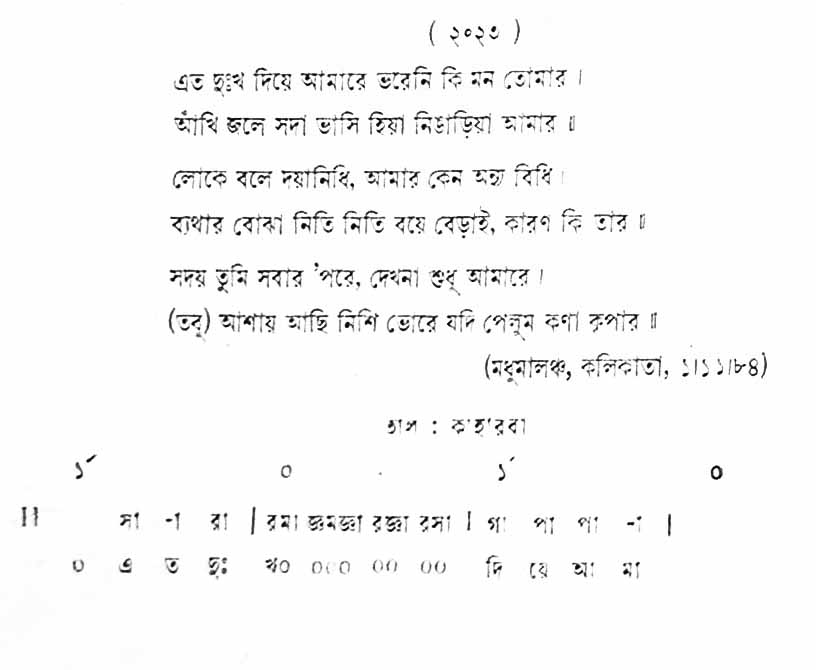 ( ২০২৩ )
এত দুঃখ দিয়ে আমারে ভরেনি কি মন তোমার ।
আঁখি জলে সদা ভাসি হিয়া নিঙাড়িয়া আমার ॥
লোকে বলে দয়ানিধি, আমার কেন অন্য বিধি ।
ব্যথার বোঝা নিতি নিতি বয়ে বেড়াই, কারণ কি তার ॥
সদয় তুমি সবার 'পরে, দেখনা শুধু আমারে ।
(তবু) আশায় আছি নিশি ভোরে যদি পেলুম কণা কৃপার ॥
(মধুমালঞ্চ, কলিকাতা, ১।১১।৮৪)
তাল : কাহারবা
১´ ০ ১´ ০
II সা -া রা | রমা জ্ঞমজ্ঞা রজ্ঞা রসা | গা পা পা -া |
০ এ ত দুঃ খ০ ০০০ ০০ ০০ দি য়ে আ মা